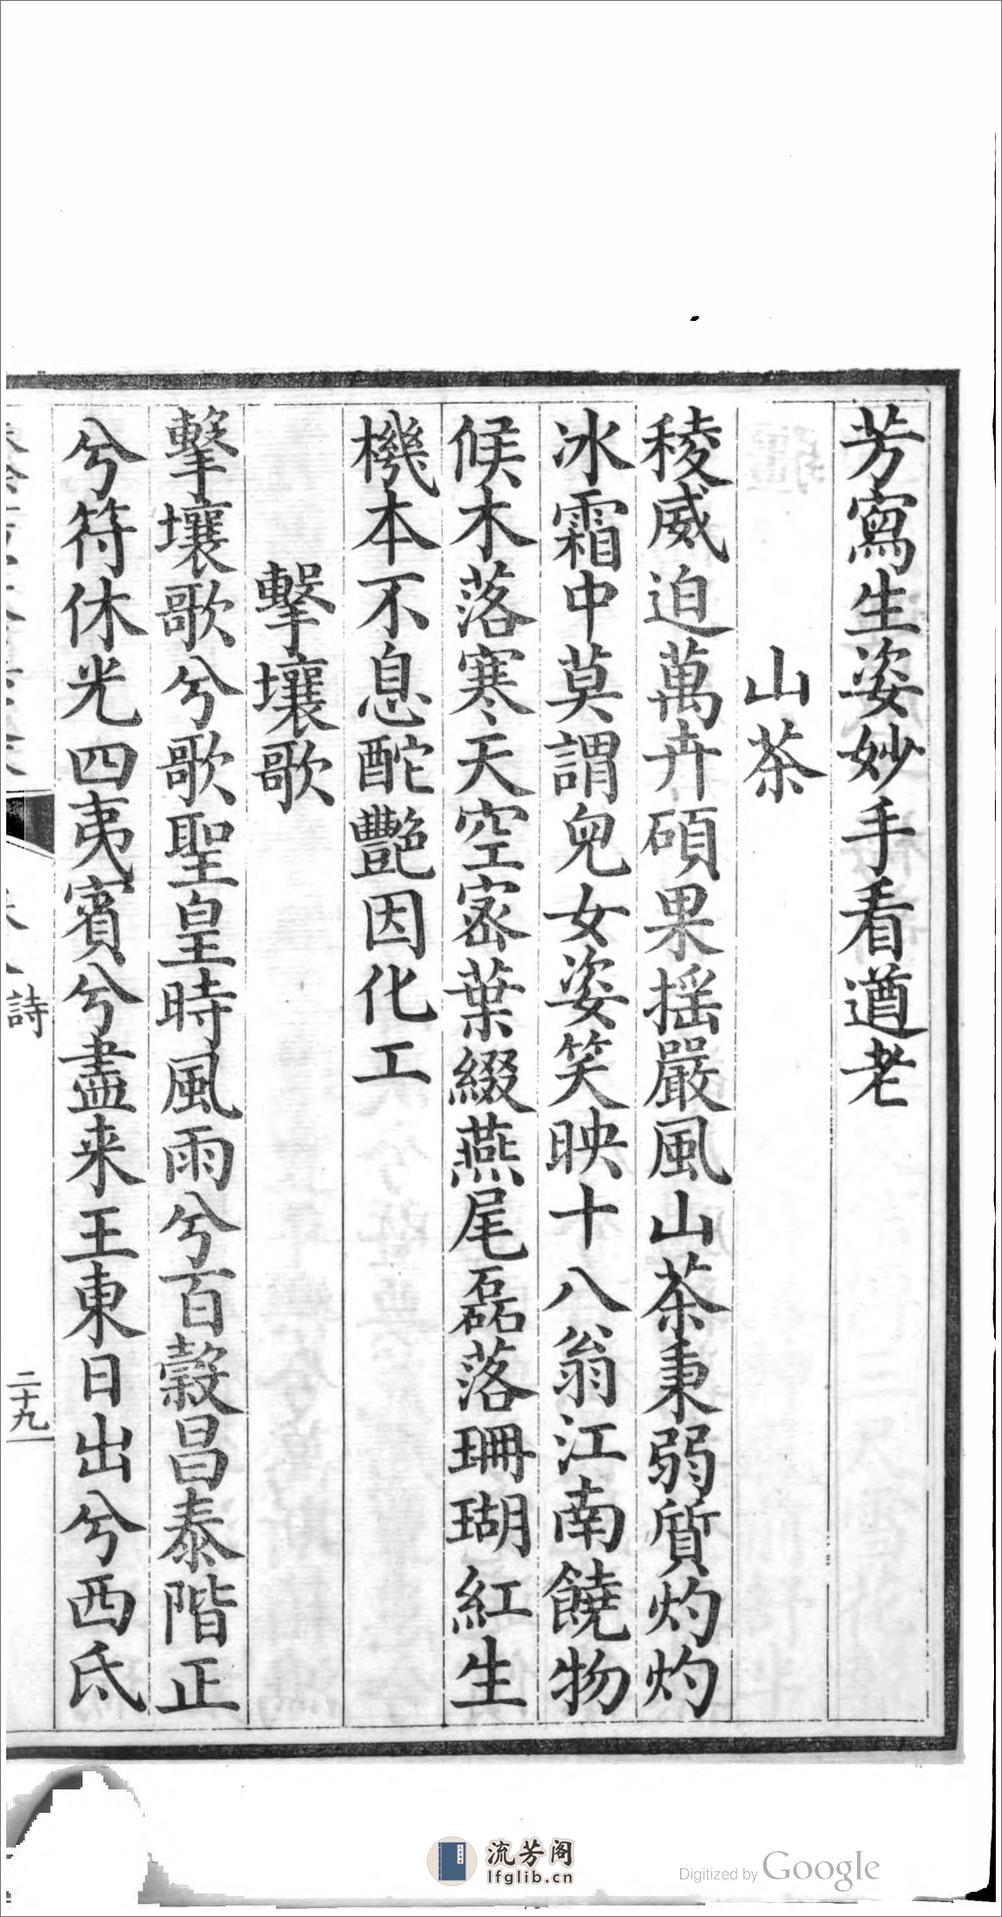 芳寫生姿妙手看遒老
山茶
稜威迫萬卉碩果摇嚴風山茶秉弱質灼灼
冰霜中莫謂兒女姿笑映十八翁江南饒物
候木落寒天空宻葉綴燕尾磊落珊瑚紅生
機本不息酡艷因化工
擊壤歌
擊壤歌兮歌聖皇時風雨兮百穀昌泰階正
兮符休光四夷賓兮盡来王東日出兮西氐
詩
二十九
流芳阁
lfglib.cn
Digitized by Google